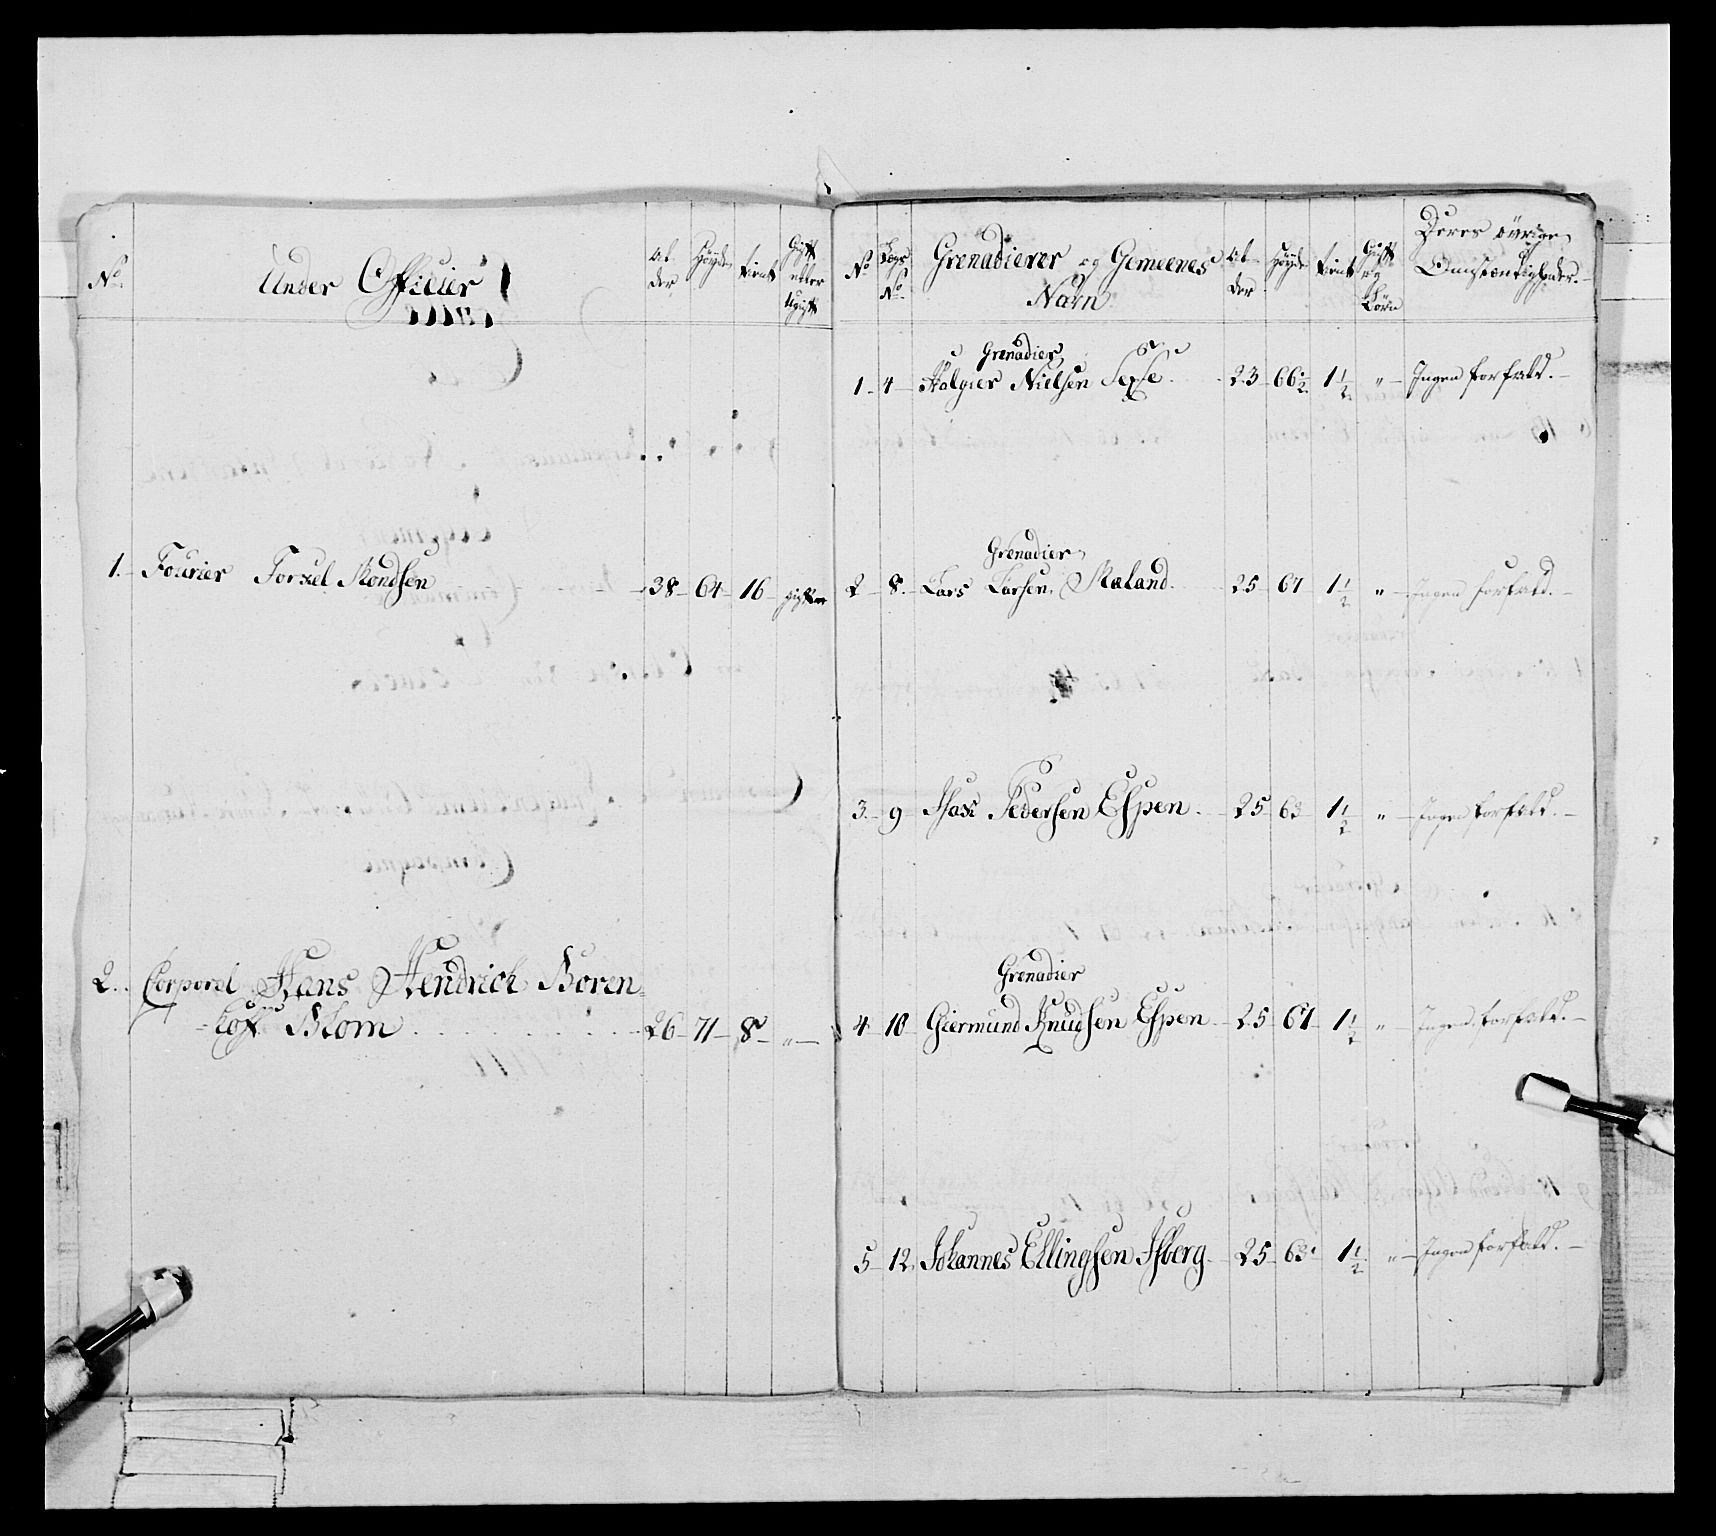 No
Under Officier
Al-
der
Høyde
tient
Gift
eller
Ugift
1. Fourier Torkel Mondsen 38 64 16 gift
2. Corporal Hans Hendrick Boren-
Blom 26 71 8 "
No
Lægs
No
Grenadierer og Gemeenes
Navn
Al-
der
Høyde
tient
Gift
og
Børn
Deres øvrige
Omstændigheder.
Grenadier
1 4 Holgier Nielsen Sexe 23 66½ 1½ " Ingen forfald.
Grenadier
2 8 Lars Larsen Mæland 25 67 1½ " Ingen forfald.
3 9 Isak Pedersen Espen 25 63 1½ " Ingen forfald.
Grenadier
4 10 Giermund Knudsen Espen 25 67 1½ " Ingen forfald.
5 12 Johannes Ellingsen Isberg 25 63 1½ " Ingen forfald.